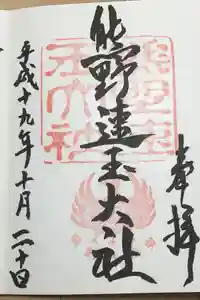 奉拝
熊野速玉大社
平成十九年十月二十日